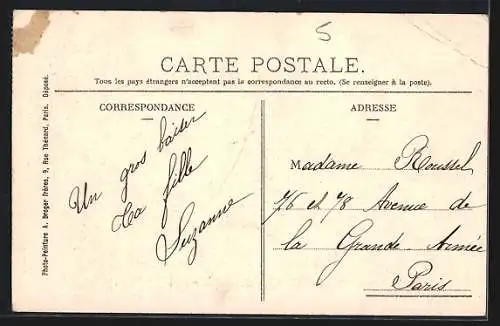 5
CARTE POSTALE.
Tous les pays étrangers n'acceptent pas la correspondance au recto. (Se renseigner à la poste).
CORRESPONDANCE
Un gros baiser
Ta fille
Suzanne
ADRESSE
Madame Roussel
76 et 78 Avenue de
la Grande Armée
Paris
Photo-Peinture A. Berger Frères, 9, Rue Thénard, Paris. Déposé.